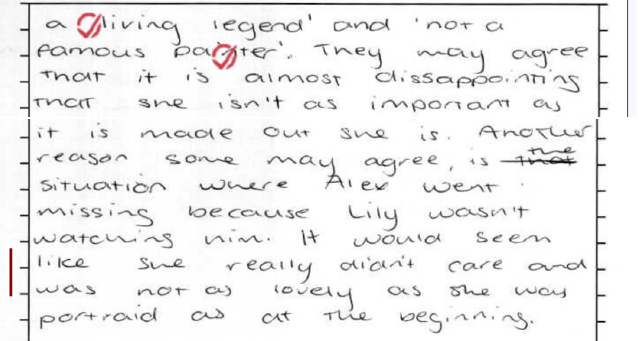 a 'living legend' and 'not a
famous painter'. They may agree
that it is almost dissappointing
that she isn't as important as
it is made out she is. Another
reason some may agree, is the
situation where Alex went
missing because Lily wasn't
watching him. It would seem
like she really didn't care and
was not as lovely as she was
portraid as at the beginning.